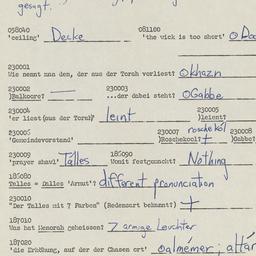 gesagt.
058040 081100
'ceiling' Decke 'the wick is too short'
230001
Wie nennt man den, der aus der Torah vorliest? Okhazn
230002 230003
]Balkoore? — ...der dabei steht? OGabbe
230004 230005
'er liest (aus der Torah)' leint ]leient?
230006 230007 roschekól 230008
'Gemeindevorstand' ]Roschekool? + ]Gabbe?
230009 185090
'prayer shawl' Talles Womit festgemacht? Nothing
185080
Talles = Dalles 'Armut'? different pronunciation
230010
"Der Talles mit 7 Farben" (Redensart bekannt?) +
187010
Was hat Menorah geheissen? 7 armige Leuchter
187020
'die Erhöhung, auf der der Chasen ort' Oalmémer; altar